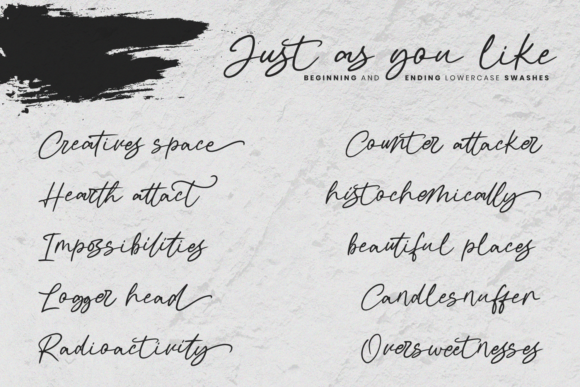 Just as you like
BEGINNING AND ENDING LOWERCASE SWASHES
Creatives space
Hearth attact
Impossibilities
Logger head
Radioactivity
Counter attacker
histochemically
beautiful places
Candlesnuffer
Oversweetnesses